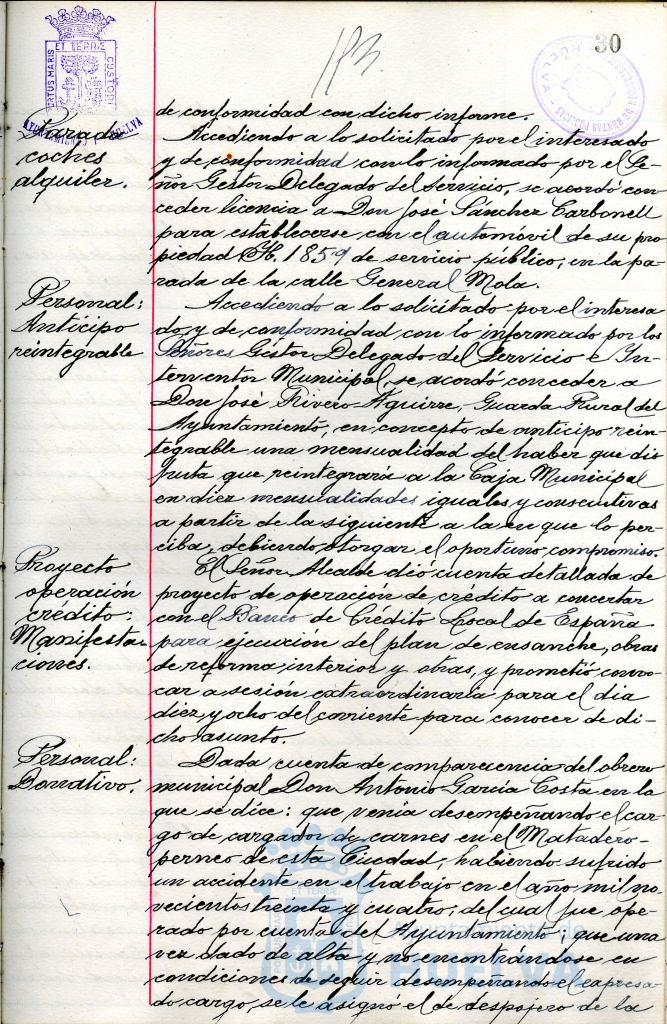 30
113.
PORTUS MARIS ET TERRAE CUSTODIA
AYUNTAMIENTO DE HUELVA
ADMINISTRACION DE RENTAS PUBLICAS
HUELVA
Parada
coches
alquiler.
de conformidad con dicho informe.
Accediendo a lo solicitado por el interesado
y de conformidad con lo informado por el Se-
ñor Gestor Delegado del Servicio, se acordó con-
ceder licencia a Don José Sánchez Carbonell
para establecerse con el automóvil de su pro
piedad H. 1859 de servicio público, en la pa-
rada de la calle General Mola.
Personal:
Anticipo
reintegrable
Accediendo a lo solicitado por el interesa
do, y de conformidad con lo informado por los
Señores Gestor Delegado del Servicio e In-
terventor Municipal, se acordó conceder a
Don José Rivero Aguirre, Guarda Rural del
Ayuntamiento, en concepto de anticipo rein-
tegrable una mensualidad del haber que dis
fruta que reintegrará a la Caja Municipal
en diez mensualidades iguales y consecutivas
a partir de la siguiente a la en que lo per-
ciba, debiendo otorgar el oportuno compromiso.
Proyecto
operación
crédito:
Manifesta-
ciones.
El Señor Alcalde dió cuenta detallada de
proyecto de operación de crédito a concertar
con el Banco de Crédito Local de España
para ejecución del plan de ensanche, obras
de reforma interior y otras, y prometió convo-
car a sesión extraordinaria para el dia
diez y ocho del corriente para conocer de di-
cho asunto.
Personal:
Donativo.
Dada cuenta de comparecencia del obrero
municipal Don Antonio García Costa en la
que se dice: que venía desempeñando el car-
go de cargador de carnes en el Matadero-
perneo de esta Ciudad; habiendo sufrido
un accidente en el trabajo en el año mil no
vecientos treinta y cuatro, del cual fue ope-
rado por cuenta del Ayuntamiento; que una
vez dado de alta y no encontrándose en
condiciones de seguir desempeñando el expresa-
do cargo, se le asignó el de despojero de la
Ayuntamiento de
HUELVA